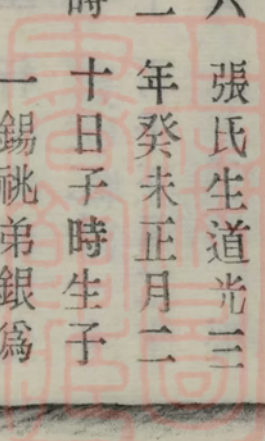 張氏生道光三
年癸未正月二
十日子時生子
一錫祧弟銀爲